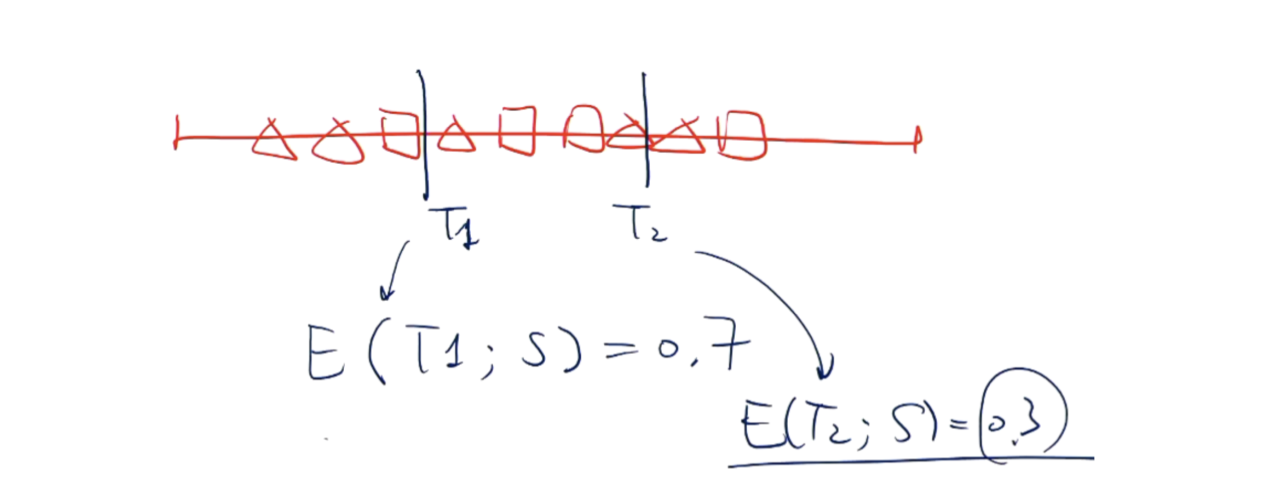 T1 T2
E(T1; S) = 0.7
E(T2; S) = 0.3